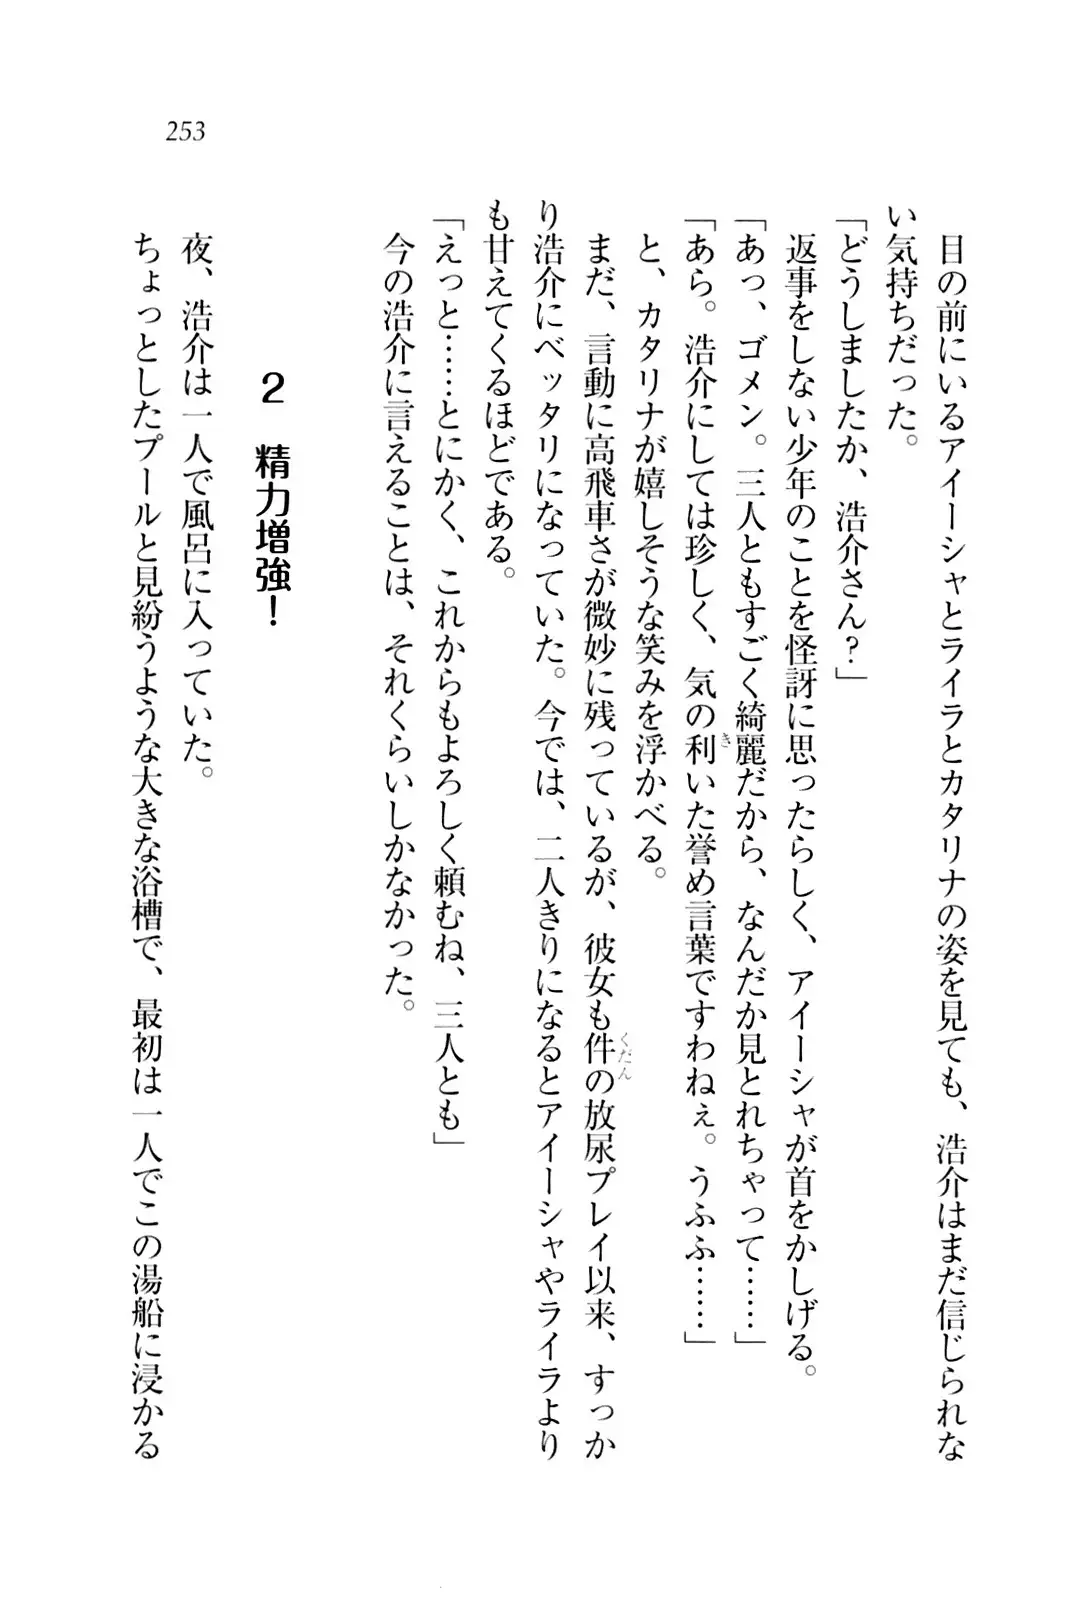 253
目の前にいるアイーシャとライラとカタリナの姿を見ても、浩介はまだ信じられな
い気持ちだった。
「どうしましたか、浩介さん？」
返事をしない少年のことを怪訝に思ったらしく、アイーシャが首をかしげる。
「あっ、ゴメン。三人ともすごく綺麗だから、なんだか見とれちゃって……」
「あら。浩介にしては珍しく、気の利いた誉め言葉ですわねぇ。うふふ……」
き
と、カタリナが嬉しそうな笑みを浮かべる。
まだ、言動に高飛車さが微妙に残っているが、彼女も件の放尿プレイ以来、すっか
くだん
り浩介にベッタリになっていた。今では、二人きりになるとアイーシャやライラより
も甘えてくるほどである。
「えっと……とにかく、これからもよろしく頼むね、三人とも」
今の浩介に言えることは、それくらいしかなかった。
2 精力増強！
夜、浩介は一人で風呂に入っていた。
ちょっとしたプールと見紛うような大きな浴槽で、最初は一人でこの湯船に浸かる